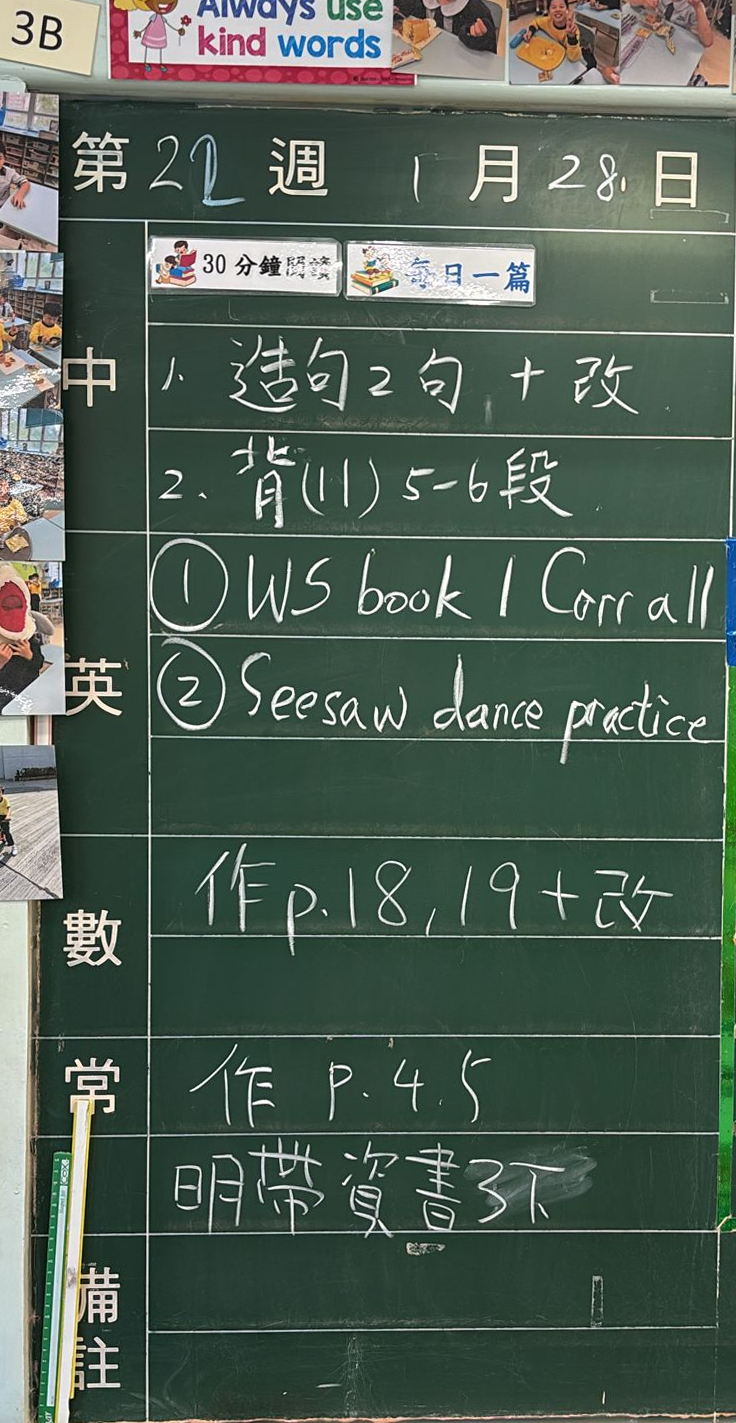 3B
Always use
kind words
第22週 1月28日
30分鐘閱讀 每日一篇
中
1. 造句2句 + 改
2. 背(11) 5-6段
英
① WS book 1 Corr all
② Seesaw dance practice
數
作p.18,19+改
常
作 P.4.5
明帶資書3下
備註